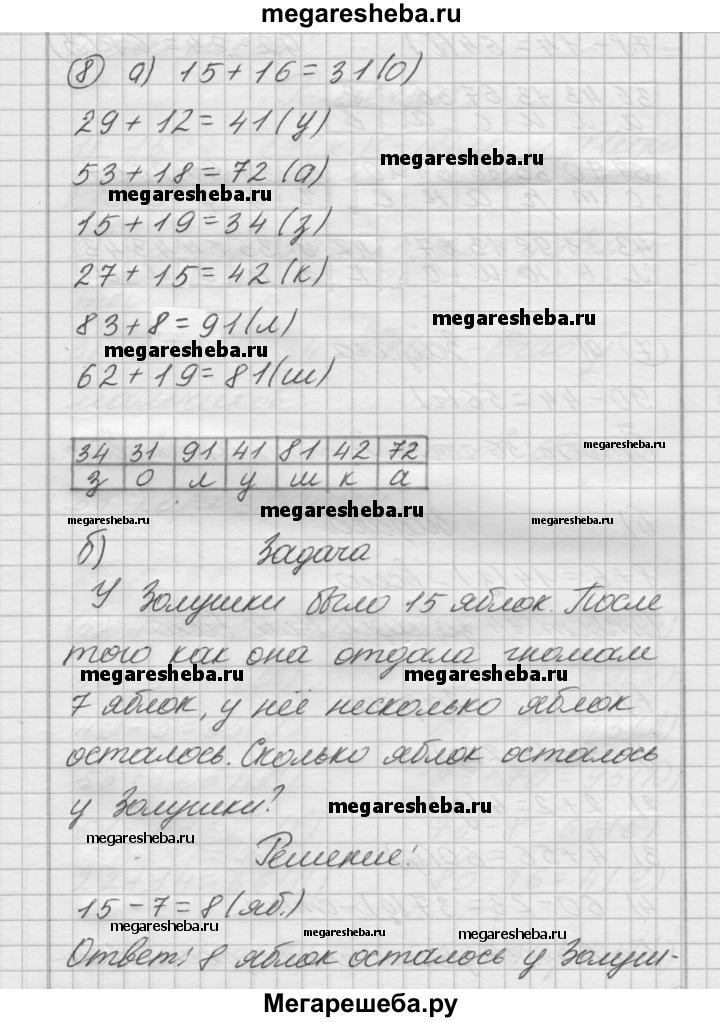 megaresheba.ru
8 а) 15 + 16 = 31 (о)
29 + 12 = 41 (у)
megaresheba.ru
53 + 18 = 72 (а)
megaresheba.ru
15 + 19 = 34 (з)
27 + 15 = 42 (к)
megaresheba.ru
83 + 8 = 91 (л)
megaresheba.ru
62 + 19 = 81 (ш)
34 31 91 41 81 42 72
megaresheba.ru
з о л у ш к а
megaresheba.ru
megaresheba.ru
megaresheba.ru
б) Задача
У Золушки было 15 яблок. После
того как она отдала гномам
megaresheba.ru
megaresheba.ru
7 яблок, у неё несколько яблок
осталось. Сколько яблок осталось
у Золушки?
megaresheba.ru
megaresheba.ru
Решение:
15 - 7 = 8 (яб.)
megaresheba.ru
megaresheba.ru
megaresheba.ru
Ответ: 8 яблок осталось у Золуш-
Мегарешеба.ру